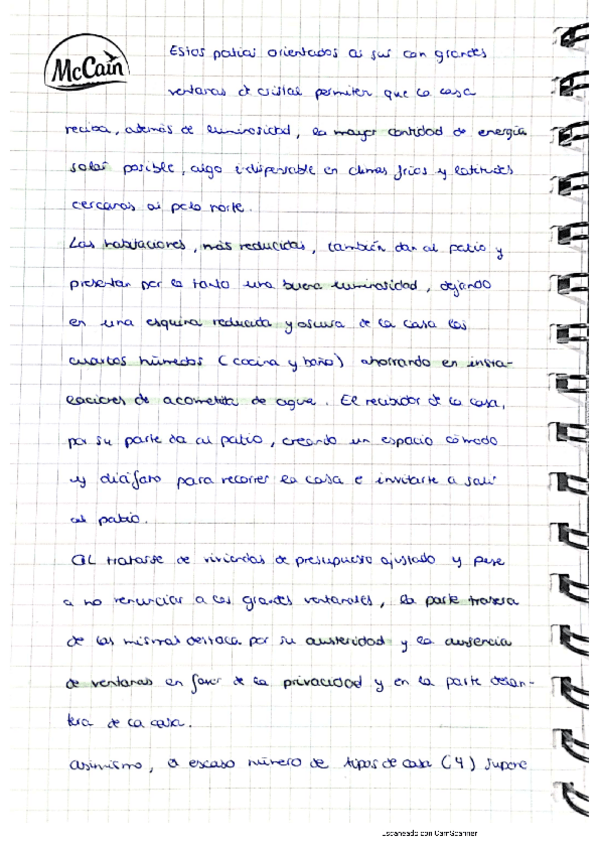 McCain
Estos patios orientados al sur con grandes
ventanas de cristal permiten que la casa
reciba, además de luminosidad, la mayor cantidad de energía
solar posible, algo indispensable en climas fríos y latitudes
cercanas al polo norte.
Las habitaciones, más reducidas, también dan al patio y
presentan por lo tanto una buena luminosidad, dejando
en una esquina reducida y oscura de la casa los
cuartos húmedos (cocina y baño) ahorrando en insta-
laciones de acometida de agua. El recibidor de la casa,
por su parte da al patio, creando un espacio cómodo
y diáfano para recorrer la casa e invitarte a salir
al patio.
Al tratarse de viviendas de presupuesto ajustado y pese
a no renunciar a los grandes ventanales, la parte trasera
de las mismas destaca por su austeridad y la ausencia
de ventanas en favor de la privacidad y en la parte delan-
tera de la casa.
Asimismo, el escaso número de tipos de casa (4) supone
Escaneado con CamScanner